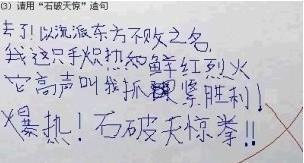 (3) 请用“石破天惊”造句
去了!以流派东方不败之名,
我这只手炽热如鲜红烈火
它高声叫我抓紧胜利!
爆热!石破天惊拳!!